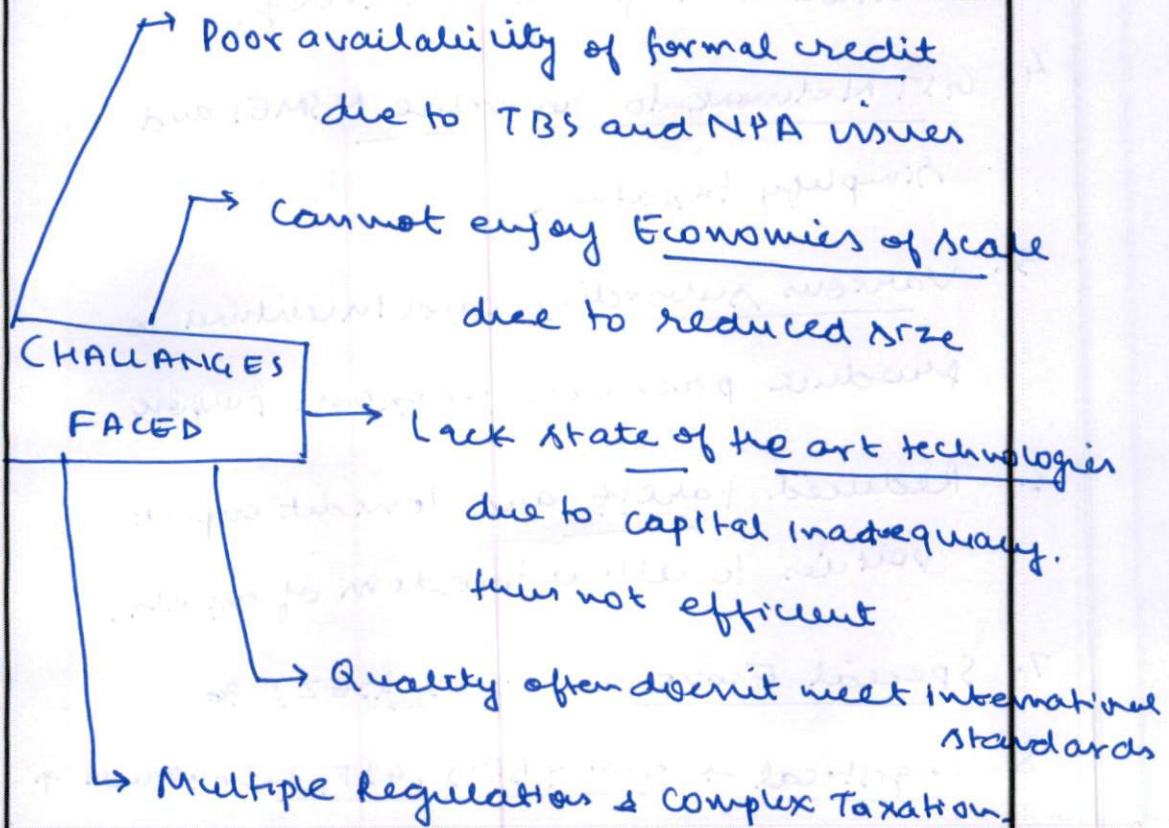 Poor availability of formal credit
due to TBS and NPA issues
Cannot enjoy Economies of scale
due to reduced size
CHALLANGES
FACED
Lack state of the art technologies
due to capital inadequacy.
thus not efficient
Quality often doesn't meet international
standards
Multiple Regulations & Complex Taxation.